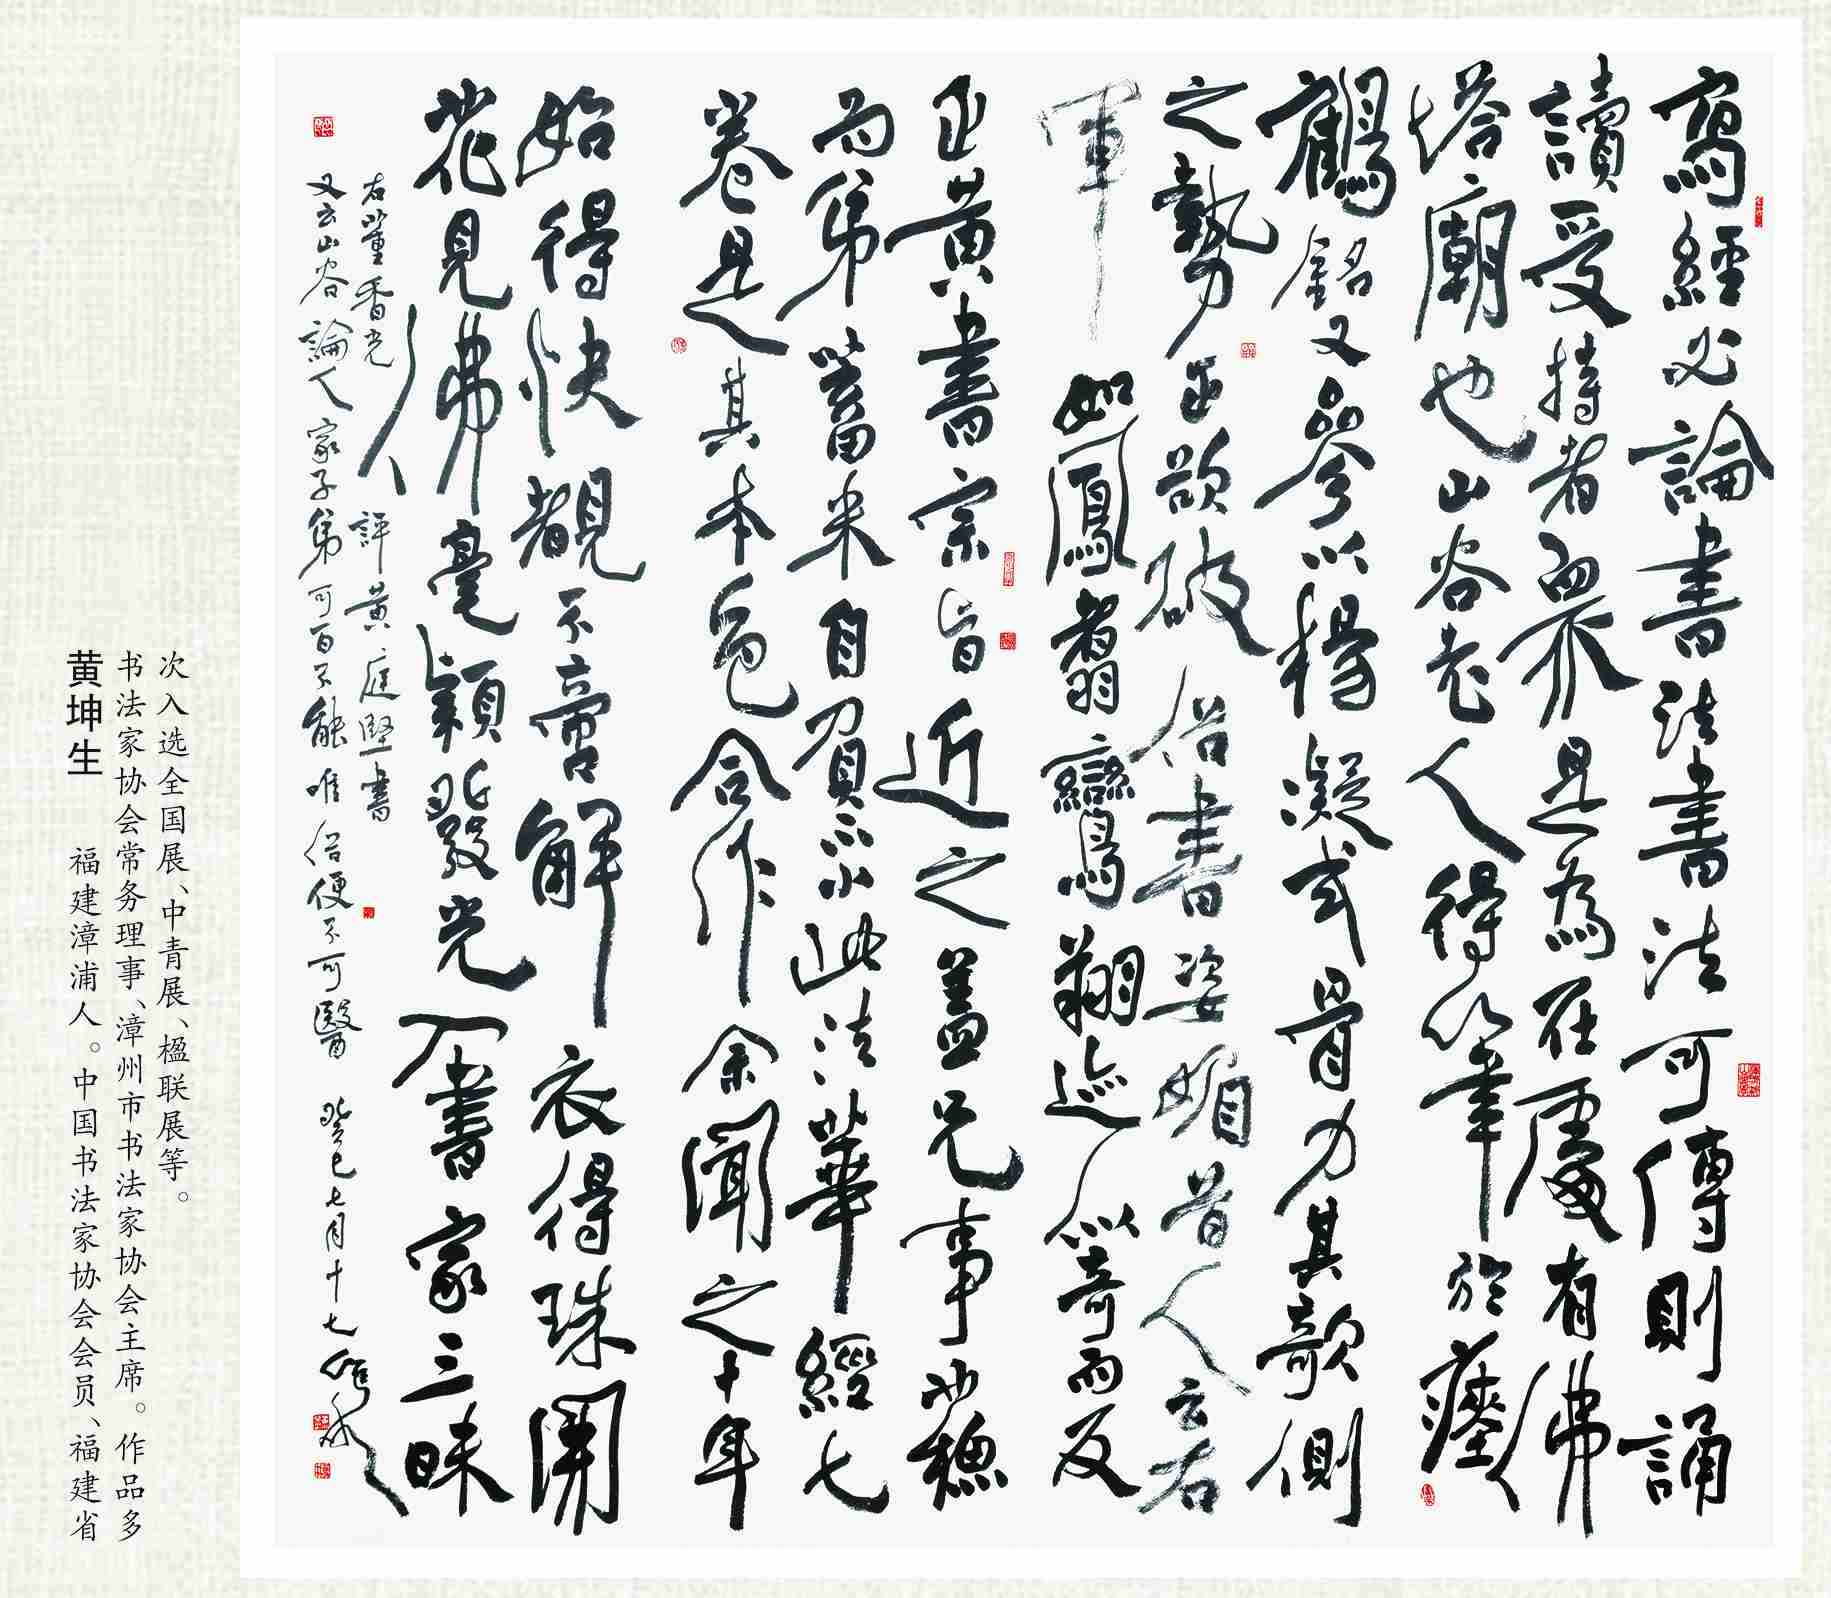 寫經必論書法書法可傳則誦
讀受持者眾是為在處有佛
塔廟也山谷老人得筆於瘞
鶴銘又參以楊凝式骨力其欹側
之勢正欲破俗書姿媚昔人云右
軍如鳳翥鸞翔迹似奇而反
正黃書宗旨近之蓋兄事
而弟蓄米自負不小此法華經七
卷是其本色合作余聞之十年
始得快覩不啻解衣得珠開
花見佛毫穎發光入書家三昧
右董香光評黃庭堅書
又云山谷論人家子弟可百不能唯俗便不可醫 癸巳七月十七
黄坤生 福建漳浦人。中国书法家协会会员、福建省
书法家协会常务理事、漳州市书法家协会主席。作品多
次入选全国展、中青展、楹联展等。